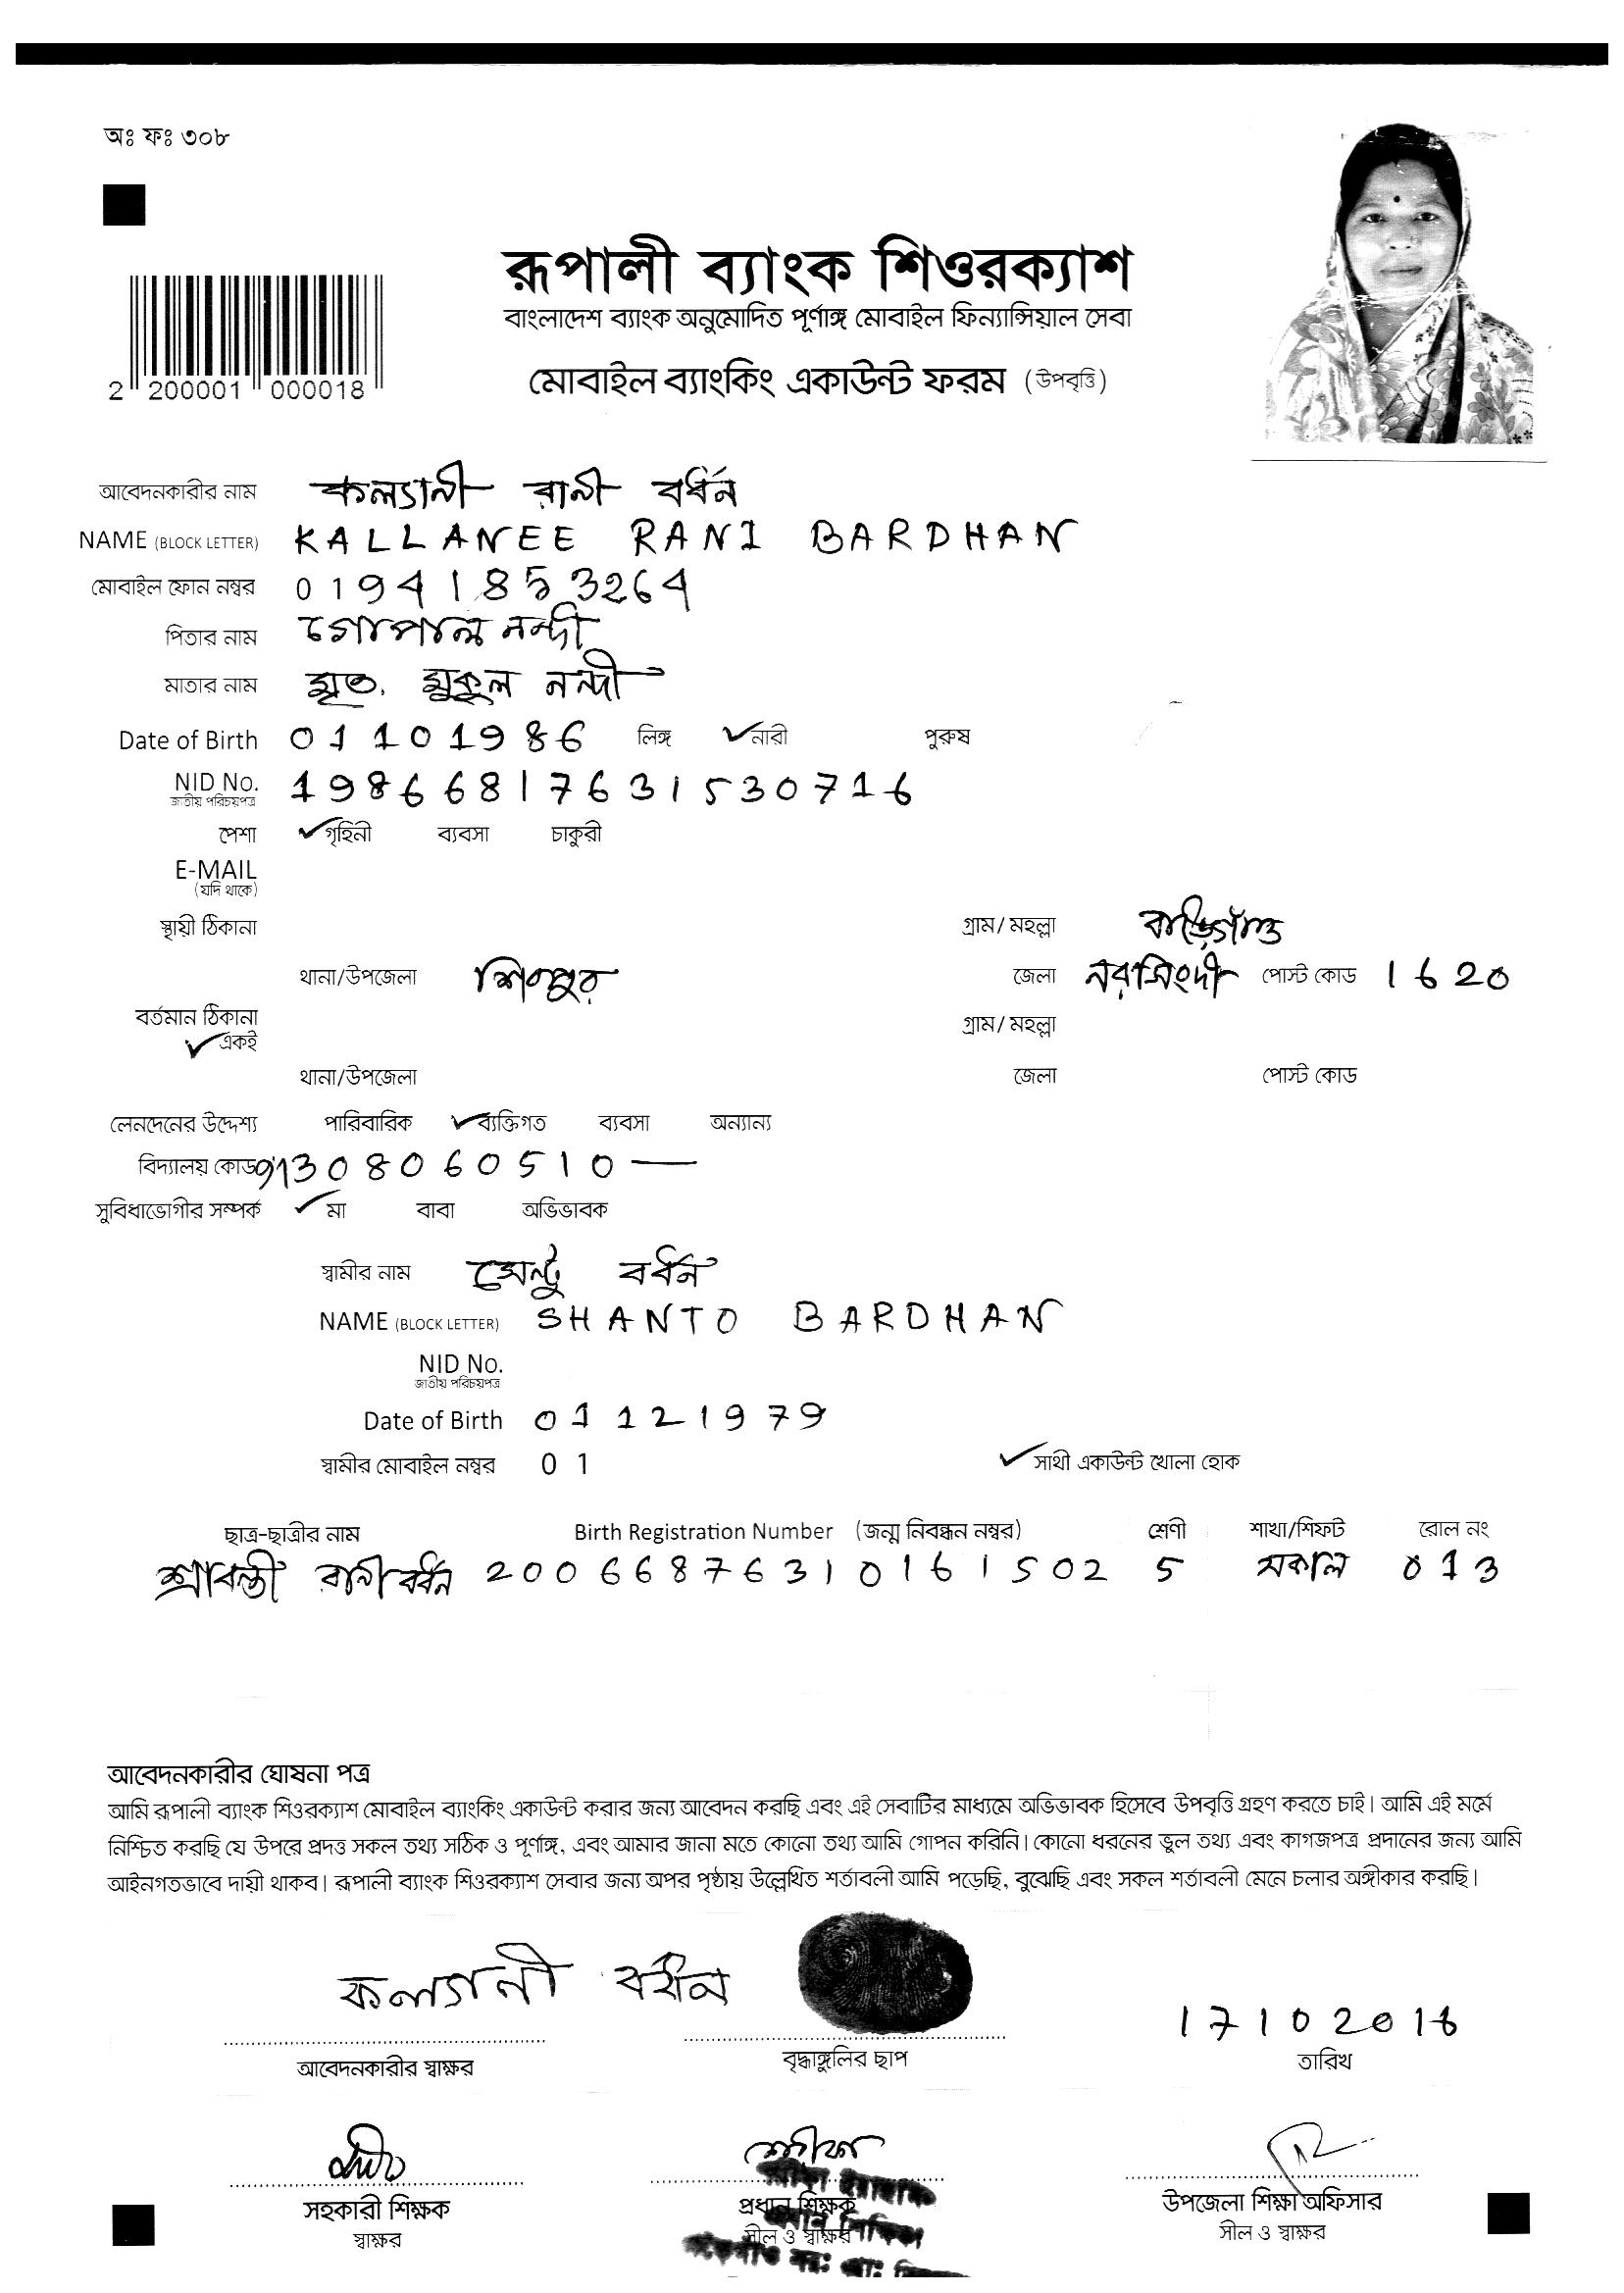 অঃ ফঃ ৩০৮
রূপালী ব্যাংক শিওরক্যাশ
বাংলাদেশ ব্যাংক অনুমোদিত পূর্ণাঙ্গ মোবাইল ফিন্যান্সিয়াল সেবা
মোবাইল ব্যাংকিং একাউন্ট ফরম (উপবৃত্তি)
2 200001 000018
আবেদনকারীর নাম কল্যানী রানী বর্ধন
NAME (BLOCK LETTER) KALLANEE RANI BARDHAN
মোবাইল ফোন নম্বর 01941853264
পিতার নাম গোপাল নন্দী
মাতার নাম মৃত. মুকুল নন্দী
Date of Birth 01101986 লিঙ্গ নারী পুরুষ
NID No. 19866817631530716
জাতীয় পরিচয়পত্র
পেশা গৃহিনী ব্যবসা চাকুরী
E-MAIL
(যদি থাকে)
স্থায়ী ঠিকানা গ্রাম/ মহল্লা
থানা/উপজেলা শিবপুর জেলা নরসিংদী পোস্ট কোড 1620
বর্তমান ঠিকানা গ্রাম/ মহল্লা
একই
থানা/উপজেলা জেলা পোস্ট কোড
লেনদেনের উদ্দেশ্য পারিবারিক ব্যক্তিগত ব্যবসা অন্যান্য
বিদ্যালয় কোড 91308060510 —
সুবিধাভোগীর সম্পর্ক মা বাবা অভিভাবক
স্বামীর নাম সেন্টু বর্ধন
NAME (BLOCK LETTER) SHANTO BARDHAN
NID No.
জাতীয় পরিচয়পত্র
Date of Birth 01121979
স্বামীর মোবাইল নম্বর 01 সাথী একাউন্ট খোলা হোক
ছাত্র-ছাত্রীর নাম Birth Registration Number (জন্ম নিবন্ধন নম্বর) শ্রেণী শাখা/শিফট রোল নং
শ্রাবন্তী রানী বর্ধন 20066876310161502 5 সকাল 013
আবেদনকারীর ঘোষনা পত্র
আমি রূপালী ব্যাংক শিওরক্যাশ মোবাইল ব্যাংকিং একাউন্ট করার জন্য আবেদন করছি এবং এই সেবাটির মাধ্যমে অভিভাবক হিসেবে উপবৃত্তি গ্রহণ করতে চাই। আমি এই মর্মে
নিশ্চিত করছি যে উপরে প্রদত্ত সকল তথ্য সঠিক ও পূর্ণাঙ্গ, এবং আমার জানা মতে কোনো তথ্য আমি গোপন করিনি। কোনো ধরনের ভুল তথ্য এবং কাগজপত্র প্রদানের জন্য আমি
আইনগতভাবে দায়ী থাকব। রূপালী ব্যাংক শিওরক্যাশ সেবার জন্য অপর পৃষ্ঠায় উল্লেখিত শর্তাবলী আমি পড়েছি, বুঝেছি এবং সকল শর্তাবলী মেনে চলার অঙ্গীকার করছি।
কল্যানী বর্ধন 17102016
আবেদনকারীর স্বাক্ষর বৃদ্ধাঙ্গুলির ছাপ তারিখ
সহকারী শিক্ষক প্রধান শিক্ষক উপজেলা শিক্ষা অফিসার
স্বাক্ষর সীল ও স্বাক্ষর সীল ও স্বাক্ষর